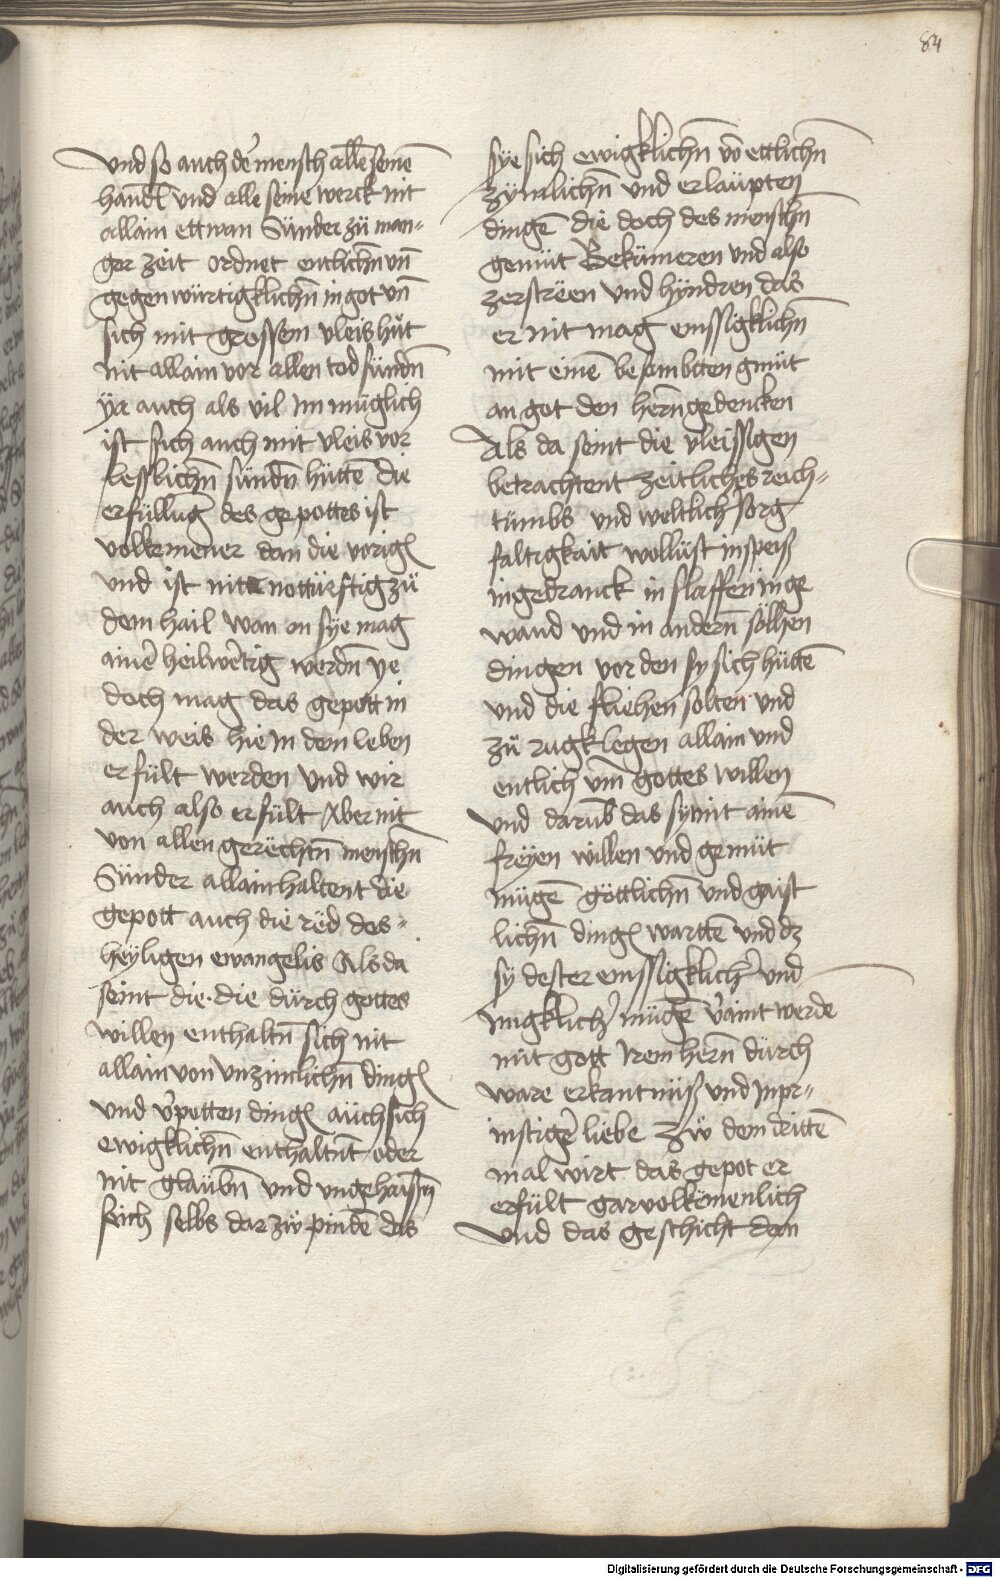 84
Und so auch der mensch alle seine
handl und alle seine werck nit
allain ettwan Sünder zü man-
ger zeit ordnet entlichn̄ vn̄
gegenwürtigklichn̄ in got vn̄
sich mit grossem vleis hüt
nit allain vor allen tod sündn̄
ya auch als vil im müglich
ist sich auch mit vleis vor
lesslichn̄ sündn̄ hüttē die
erfülluḡ des gepottes ist
volkomener dan die vorig
und ist nit notturftig zü
dem hail wan on sye mag
ainer heilwertig werdn̄ ye
doch mag das gepott in
der weis hie in dem leben
erfült werden und wir
auch also erfült Aber nit
von allen gerëchtn̄ menschn̄
Sünder allain haltent die
gepott auch die rëd des-
heyligen ewangelis Als da
seint die. die dürch gottes
willen enthaltn̄ sich nit
allain von vnzimlichn̄ ding
und v̄potten ding aüch sich
ewigklichn̄ enthaltn̄t oder
nit glaübn̄ und vngehaissn̄
sich selbs dar zw pindē das
sye sich ewigklichn̄ vō ettlichn̄
zymlichn̄ und erlaüpten
dingē die doch des menschn̄
gemüt Bekümeren und also
zerströen und hyndren das
er nit mag emssigklichn̄
mit einē besambtten gmüt
an got den hern̄ gedencken
Als da seint die vleissigen
betrachtent zeitliches reich-
tümbs und weltlich sorg
faltigkait wollüst in speiß
in gedranck in slaffen in ge
wand und in andern̄ sölhen
dingen vor den sy sich hüttē
und die fliehen solten und
zü rugk legen allain und
entlich vm̄ gottes willen
und darūb das sy mit ainē
freyen willen und gemüt
mügē göttlichn̄ und gaist
lichn̄ ding warttē und dz
sy dester emssigklicher und
ynigklicher mügē v̄aint werde
mit gott irem hern̄ dürch
ware erkantnüß und inpr-
instiger liebe Zw dem drittē
mal wirt das gepot er
erfült gar volkomenlich
Und das geschicht dem
Digitalisierung gefördert durch die Deutsche Forschungsgemeinschaft - DFG